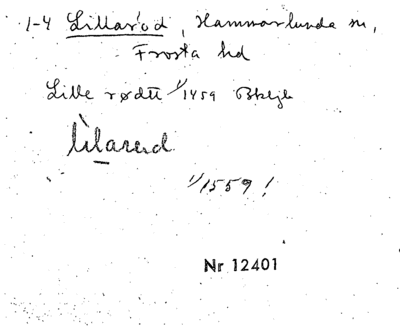 1-4 Lillaröd, Hammarlunda sn,
Frosta hd
Lille rødtt 1/1459
lilarud
1/1559!
Nr 12401